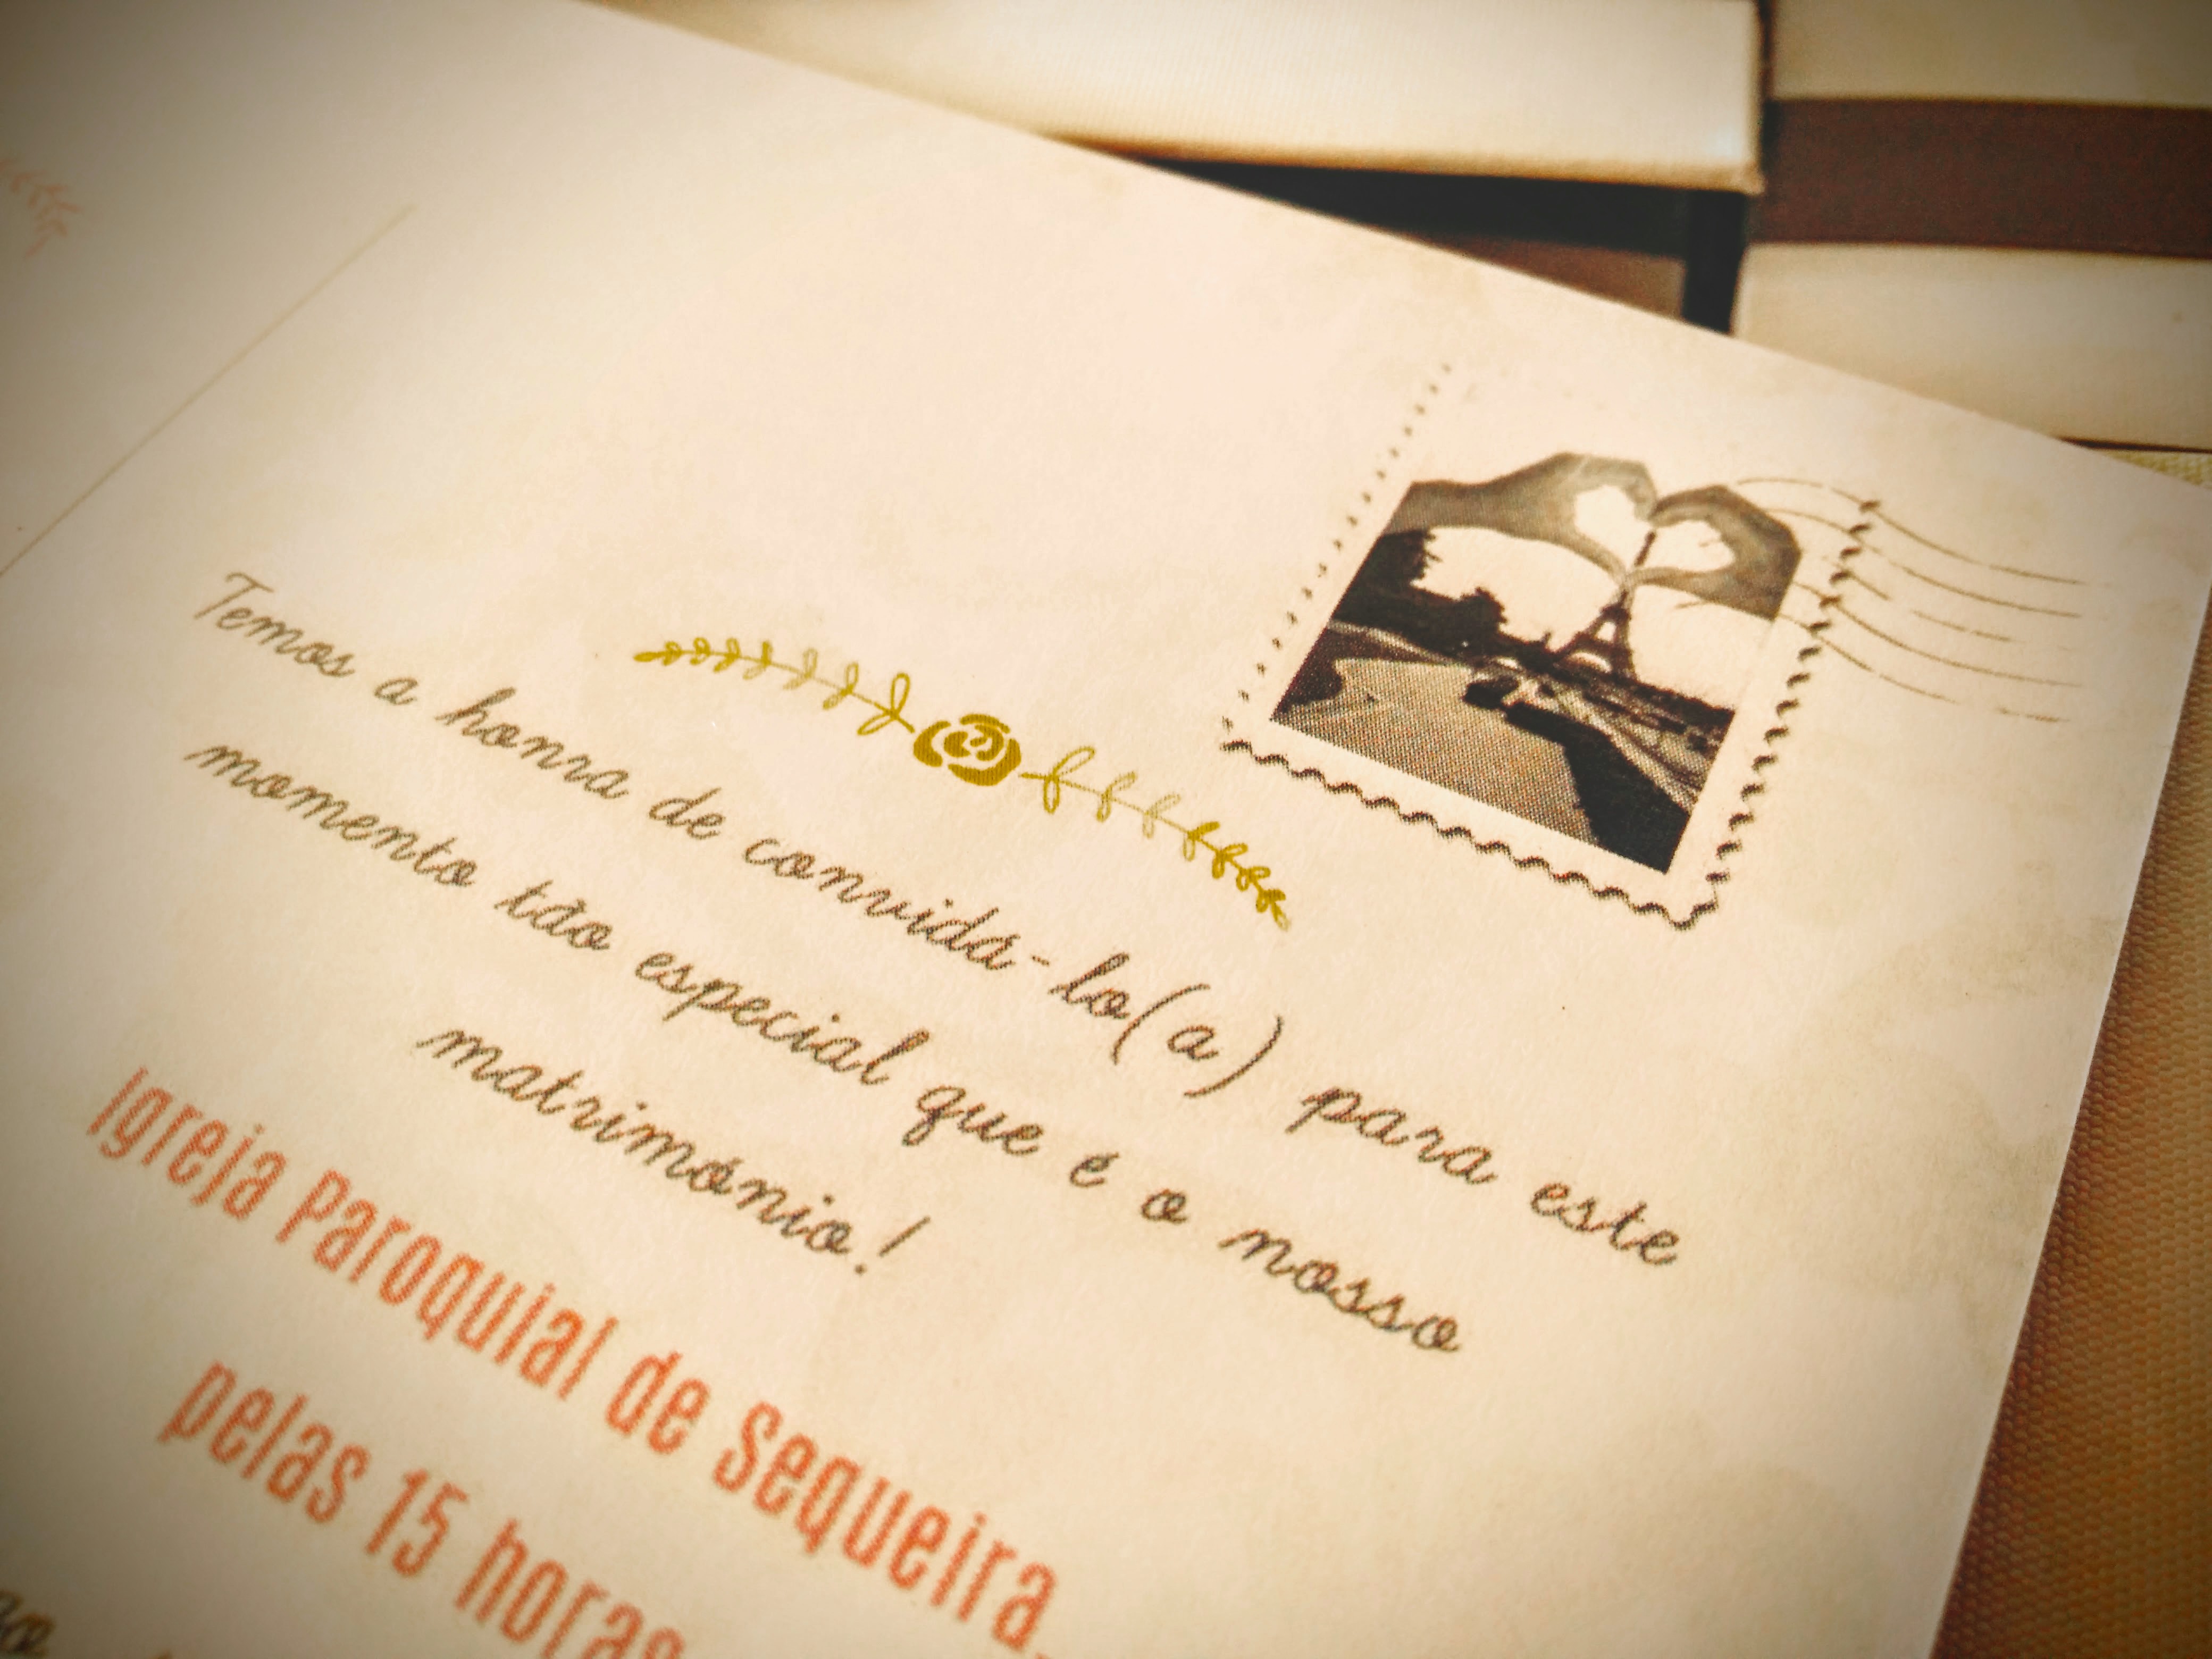 Temos a honra de convidá-lo(a) para este
momento tão especial que é o nosso
matrimónio!
Igreja Paroquial de Sequeira,
pelas 15 horas